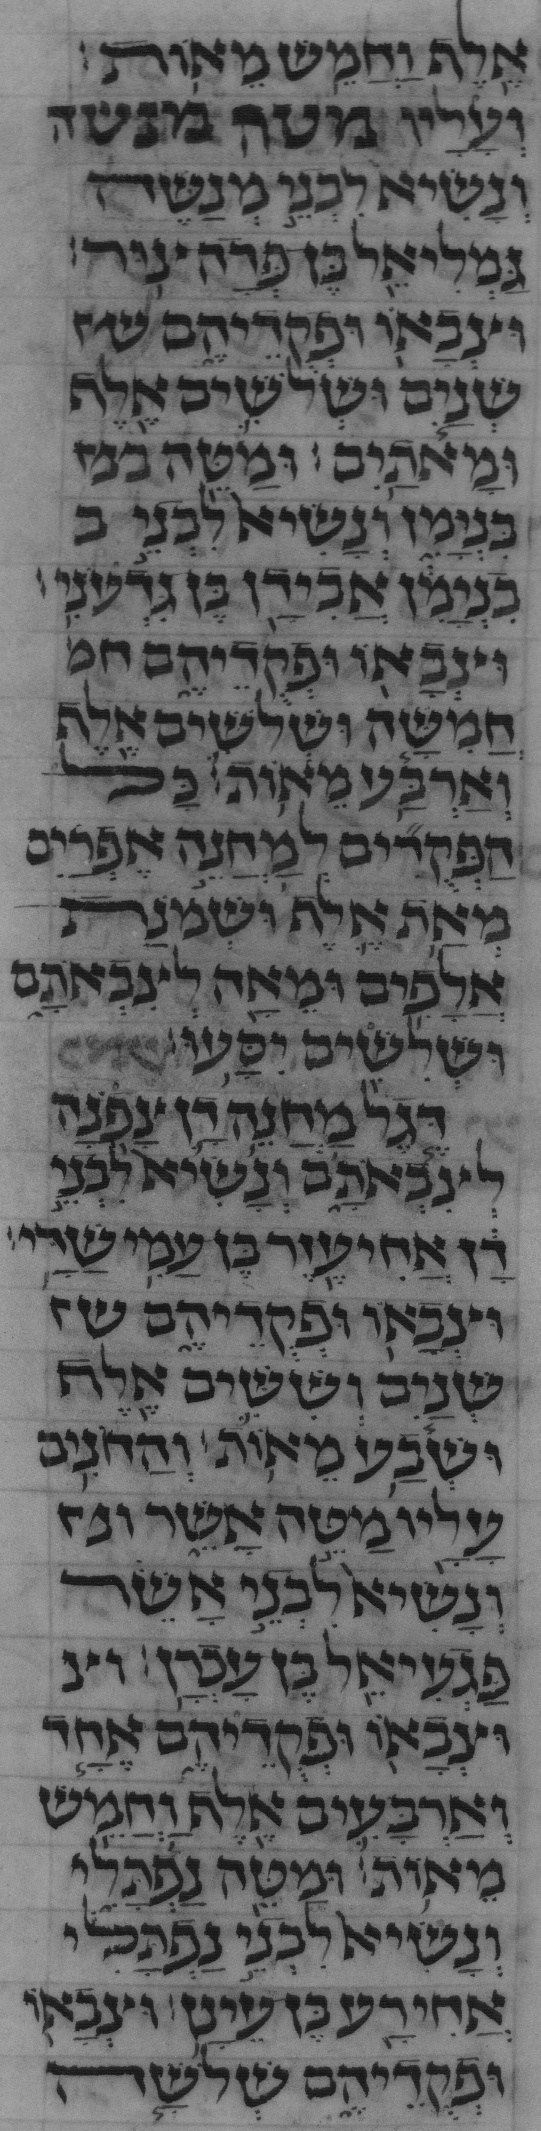 אֶלֶף וַחֲמֵשׁ מֵאֽוֹת׃
וְעָלָיו מטה מנשה
וְנָשִׂיא לִבְנֵי מְנַשֶּׁה
גַּמְלִיאֵל בֶּן פְּדָהצֽוּר׃
וּצְבָאוֹ וּפְקֻדֵיהֶם שנ
שְׁנַיִם וּשְׁלֹשִׁים אֶלֶף
וּמָאתָֽיִם׃ וּמַטֵּה בנ
בִּנְיָמִן וְנָשִׂיא לִבְנֵי ב
בִנְיָמִן אֲבִידָן בֶּן גִּדְעֹנִֽי׃
וּצְבָאוֹ וּפְקֻדֵיהֶם חמ
חֲמִשָּׁה וּשְׁלֹשִׁים אֶלֶף
וְאַרְבַּע מֵאֽוֹת׃ כָּל
הַפְּקֻדִים לְמַחֲנֵה אֶפְרַיִם
מְאַת אֶלֶף וּשְׁמֹנַת
אֲלָפִים וּמֵאָה לְצִבְאֹתָם
וּשְׁלִשִׁים יִסָּֽעוּ׃
דֶּגֶל מַחֲנֵה דָן צָפֹנָה
לְצִבְאֹתָם וְנָשִׂיא לִבְנֵי
דָן אֲחִיעֶזֶר בֶּן עַמִּי שַׁדָּֽי׃
וּצְבָאוֹ וּפְקֻדֵיהֶם שנ
שְׁנַיִם וְשִׁשִּׁים אֶלֶף
וּשְׁבַע מֵאֽוֹת׃ וְהַחֹנִים
עָלָיו מַטֵּה אָשֵׁר ונ
וְנָשִׂיא לִבְנֵי אָשֵׁר
פַּגְעִיאֵל בֶּן עָכְרָֽן׃ וצ
וּצְבָאוֹ וּפְקֻדֵיהֶם אֶחָד
וְאַרְבָּעִים אֶלֶף וַחֲמֵשׁ
מֵאֽוֹת׃ וּמַטֵּה נַפְתָּלִי
וְנָשִׂיא לִבְנֵי נַפְתָּלִי
אֲחִירַע בֶּן עֵינָֽן׃ וּצְבָאוֹ
וּפְקֻדֵיהֶם שְׁלֹשָׁה